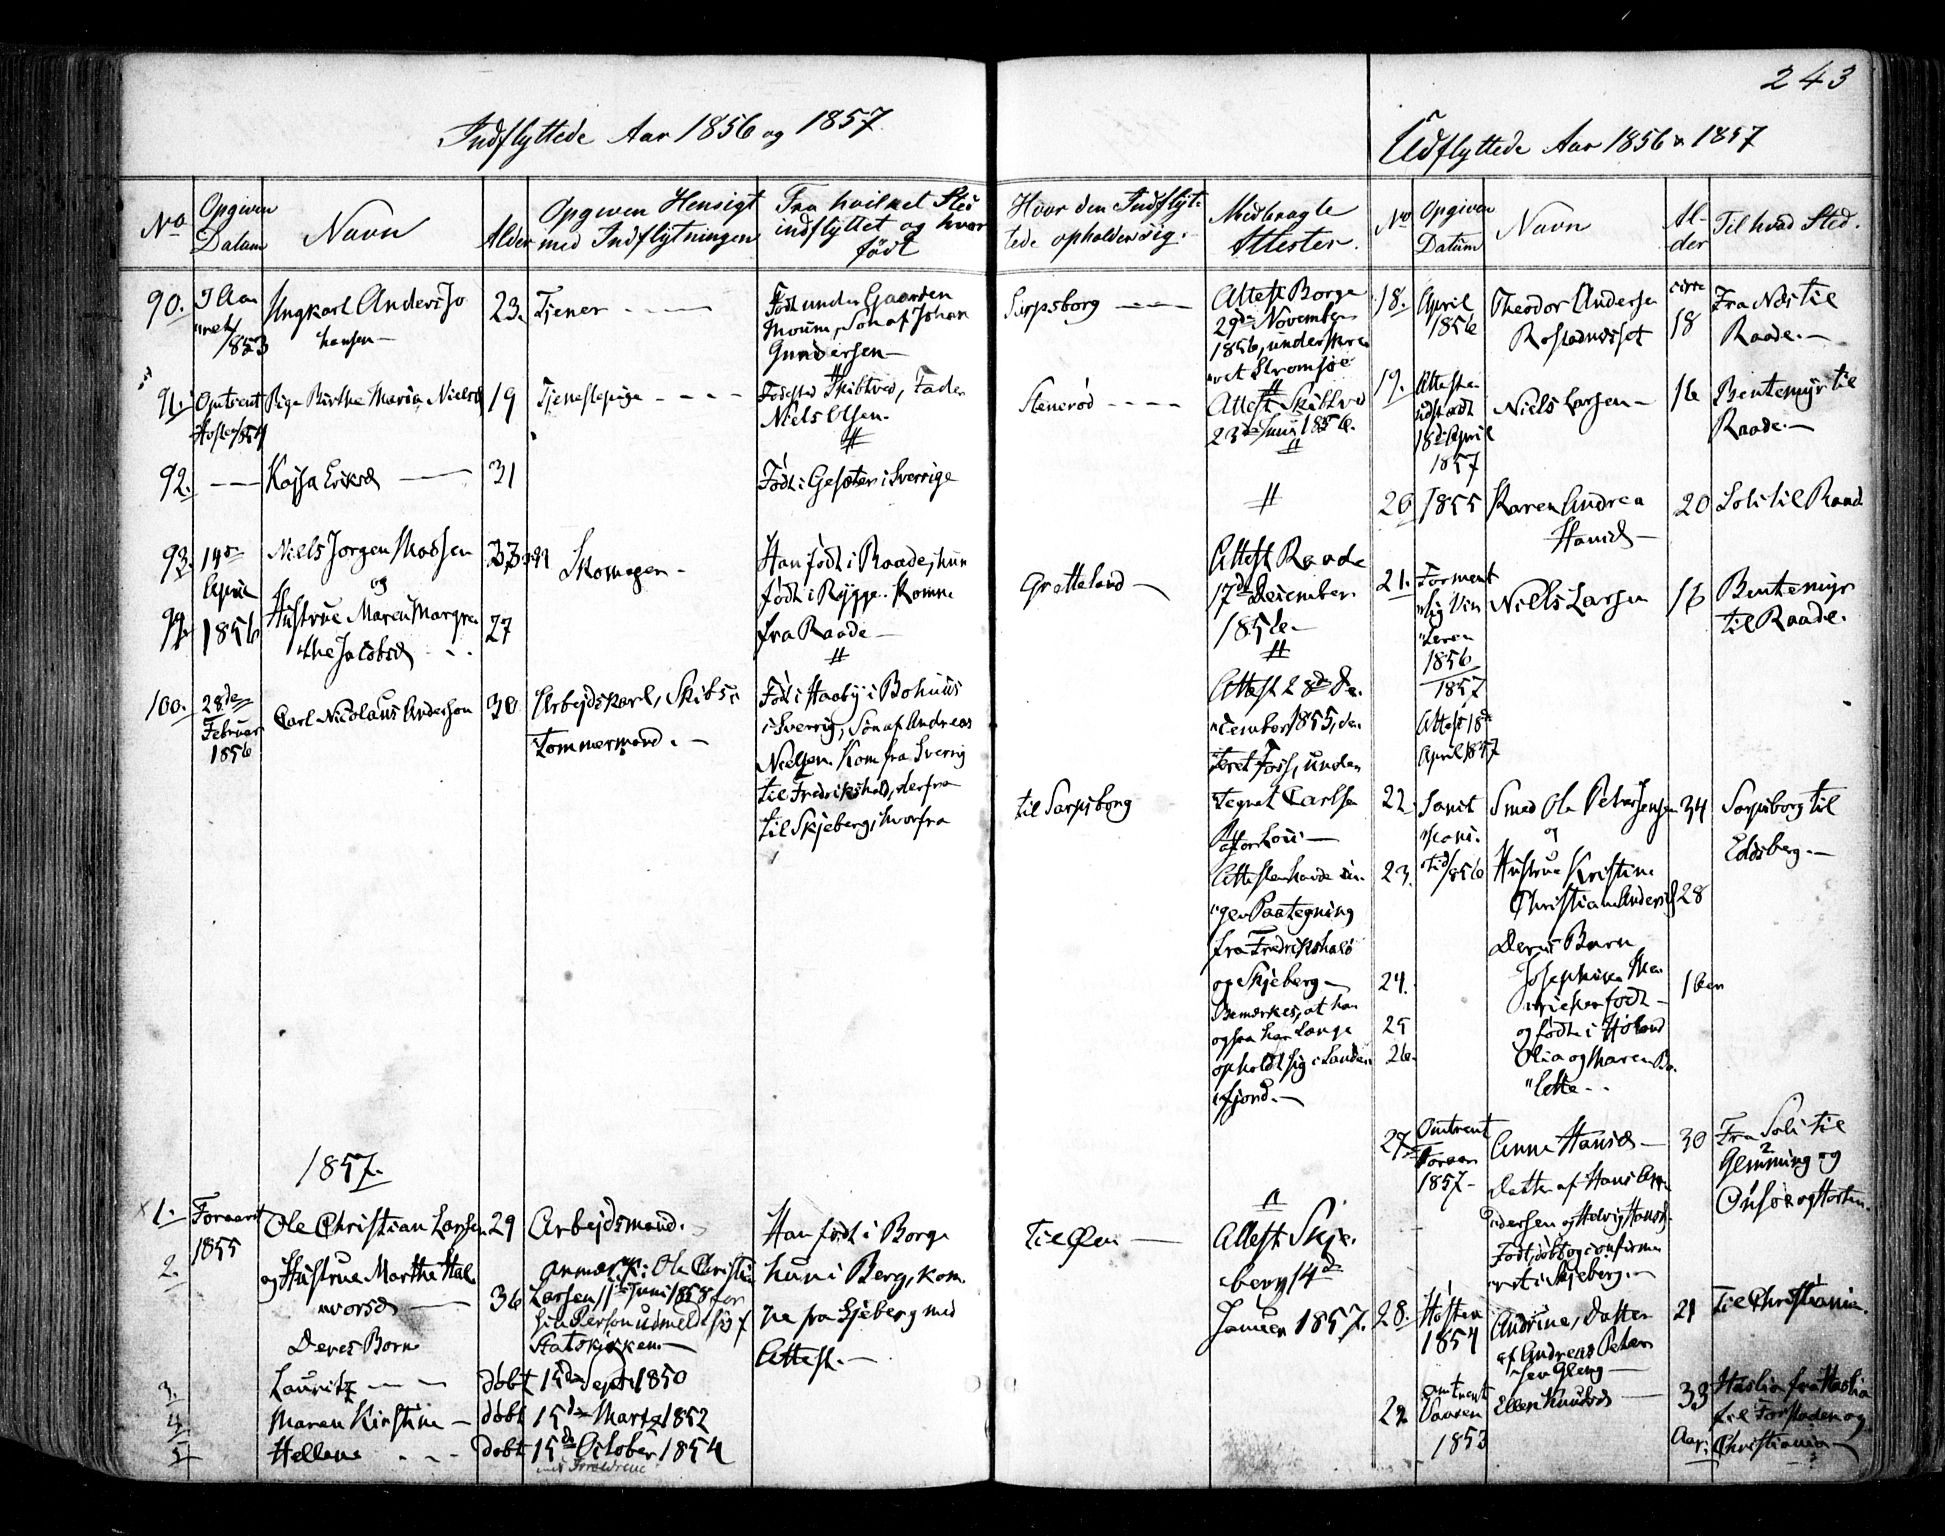 243
Indflyttede Aar 1856 og 1857.
Udflyttede Aar 1856 & 1857
No
Opgiven
Datum
Navn
Alder
Opgiven Hensigt
med Indflytningen
Fra hvilket Sted
indflyttet og hvor
født
Hvor den Indflyt-
tede opholder sig.
Medbragte
Attester.
No
Opgiven
Datum
Navn
Al-
der
Til hvad Sted.
90.
1853
Ungkarl Anders Jo
hansen
23.
Tjener
Født under Gaarden
Moum, Søn af Johan
Gundersen
Sarpsborg
Attest Borge
29de November
1856, underskre
vet Strømsøe
91.
Omtrent
Høsten 1854
Pige Birthe Maria Nielsd
19
Tjenestepige
Fødested Skibtved, Fader
Niels Olsen.
Stenerød
Attest Skibtved
23de Juni 1856.
92.
Kajsa Eriksd
31
Født i Gesæter i Sverrige
93.
14de
April
1856
Niels Jørgen Madsen
og
Hustrue Maren Margre
the Jacobsd
33
27
Skomager
Han født i Raade, hun
født i Rygge. Komne
fra Raade
Grotteland
Attest Raade
17de December
1856.
100.
28de
Februar
1856
Carl Nicolaus Anderson
30
Arbejdskarl, Skibs-
Tømmermand.
Fød i Haaby i Bohuus
i Sverrig, Søn af Andreas
Nielsen. Kom fra Sverrig
til Fredrikshald, derfra
til Skjeberg, hvorfra
til Sarpsborg
Attest 28de De-
cember 1855, da-
teret Foss, under
tegnet Carlsen
Pastor Loci
Attesten havde in-
gen Paategning
fra Fredrikshald
og Skjeberg
Bemærkes, at han
ogsaa har længe
opholdt sig i Sande-
fjord.
1857.
1.
Foraaret
1855
Ole Christian Larsen
29
Arbejdsmand.
Han født i Borge
Til Øen
Attest Skje-
berg 14de
Januar 1857.
2.
og Hustrue Marthe Hal
vorsd
36
Anmærk: Ole Christian
Larsen 11te Juni 1858 for
sin Person udmeldt sig af
Statskirken.
hun i Berg, kom
ne fra Skjeberg med
Attest.
Deres Børn
3.
Lauritz
døbt 15de Sept 1850
4.
Maren Kirstine
døbt 15de Marts 1852
5.
Hellene
døbt 15de October 1854
18.
April
1856
Theodor Andersen
Rostadnesset
circa
18
Fra Næs til
Raade.
19.
Attest
udstædt
18de April
1857
Niels Larsen
16
Bentemyr til
Raade.
20
1855
Karen Andrea
Hansd
20
Soli til Raade
21.
Forment
lig Vin
teren
1856
1857
Attest 18de
April 1857
Niels Larsen
16
Bentemyr
til Raade.
22.
Sanct
Hans-
tid 1856
Smed Ole Petersen
og
34
Sarpsborg til
Eidsberg.
23.
Hustrue Kristine
Christiane Andersd
28
Deres Børn
24.
Josephine
født
25
og født i Høland
26.
Olia og Maren Bo
lette
27.
Omtrent
Foraar
1857
Anne Hansd
Datter af Hans
Pedersen og Hedvig Hansd
Født, døbt og confirme
ret i Skjeberg.
30
Fra Soli til
Glemming og
Onsøe og Horten.
28.
Høsten
1854
Andrine, Datter
af Andreas Peter
sen Gleng
21
til Christiania.
29
Omtrent
Vaaren
1853
Ellen Knudsd
33
Aar.
Haslia fra Haslia
til Forstaden og
Christiania